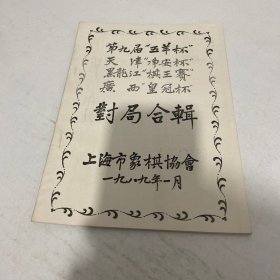 第九届"五羊杯"
天津"津安杯"
黑龍江"棋王賽"
廣西"皇冠杯"
對局合輯
上海市象棋協會
一九八九年一月